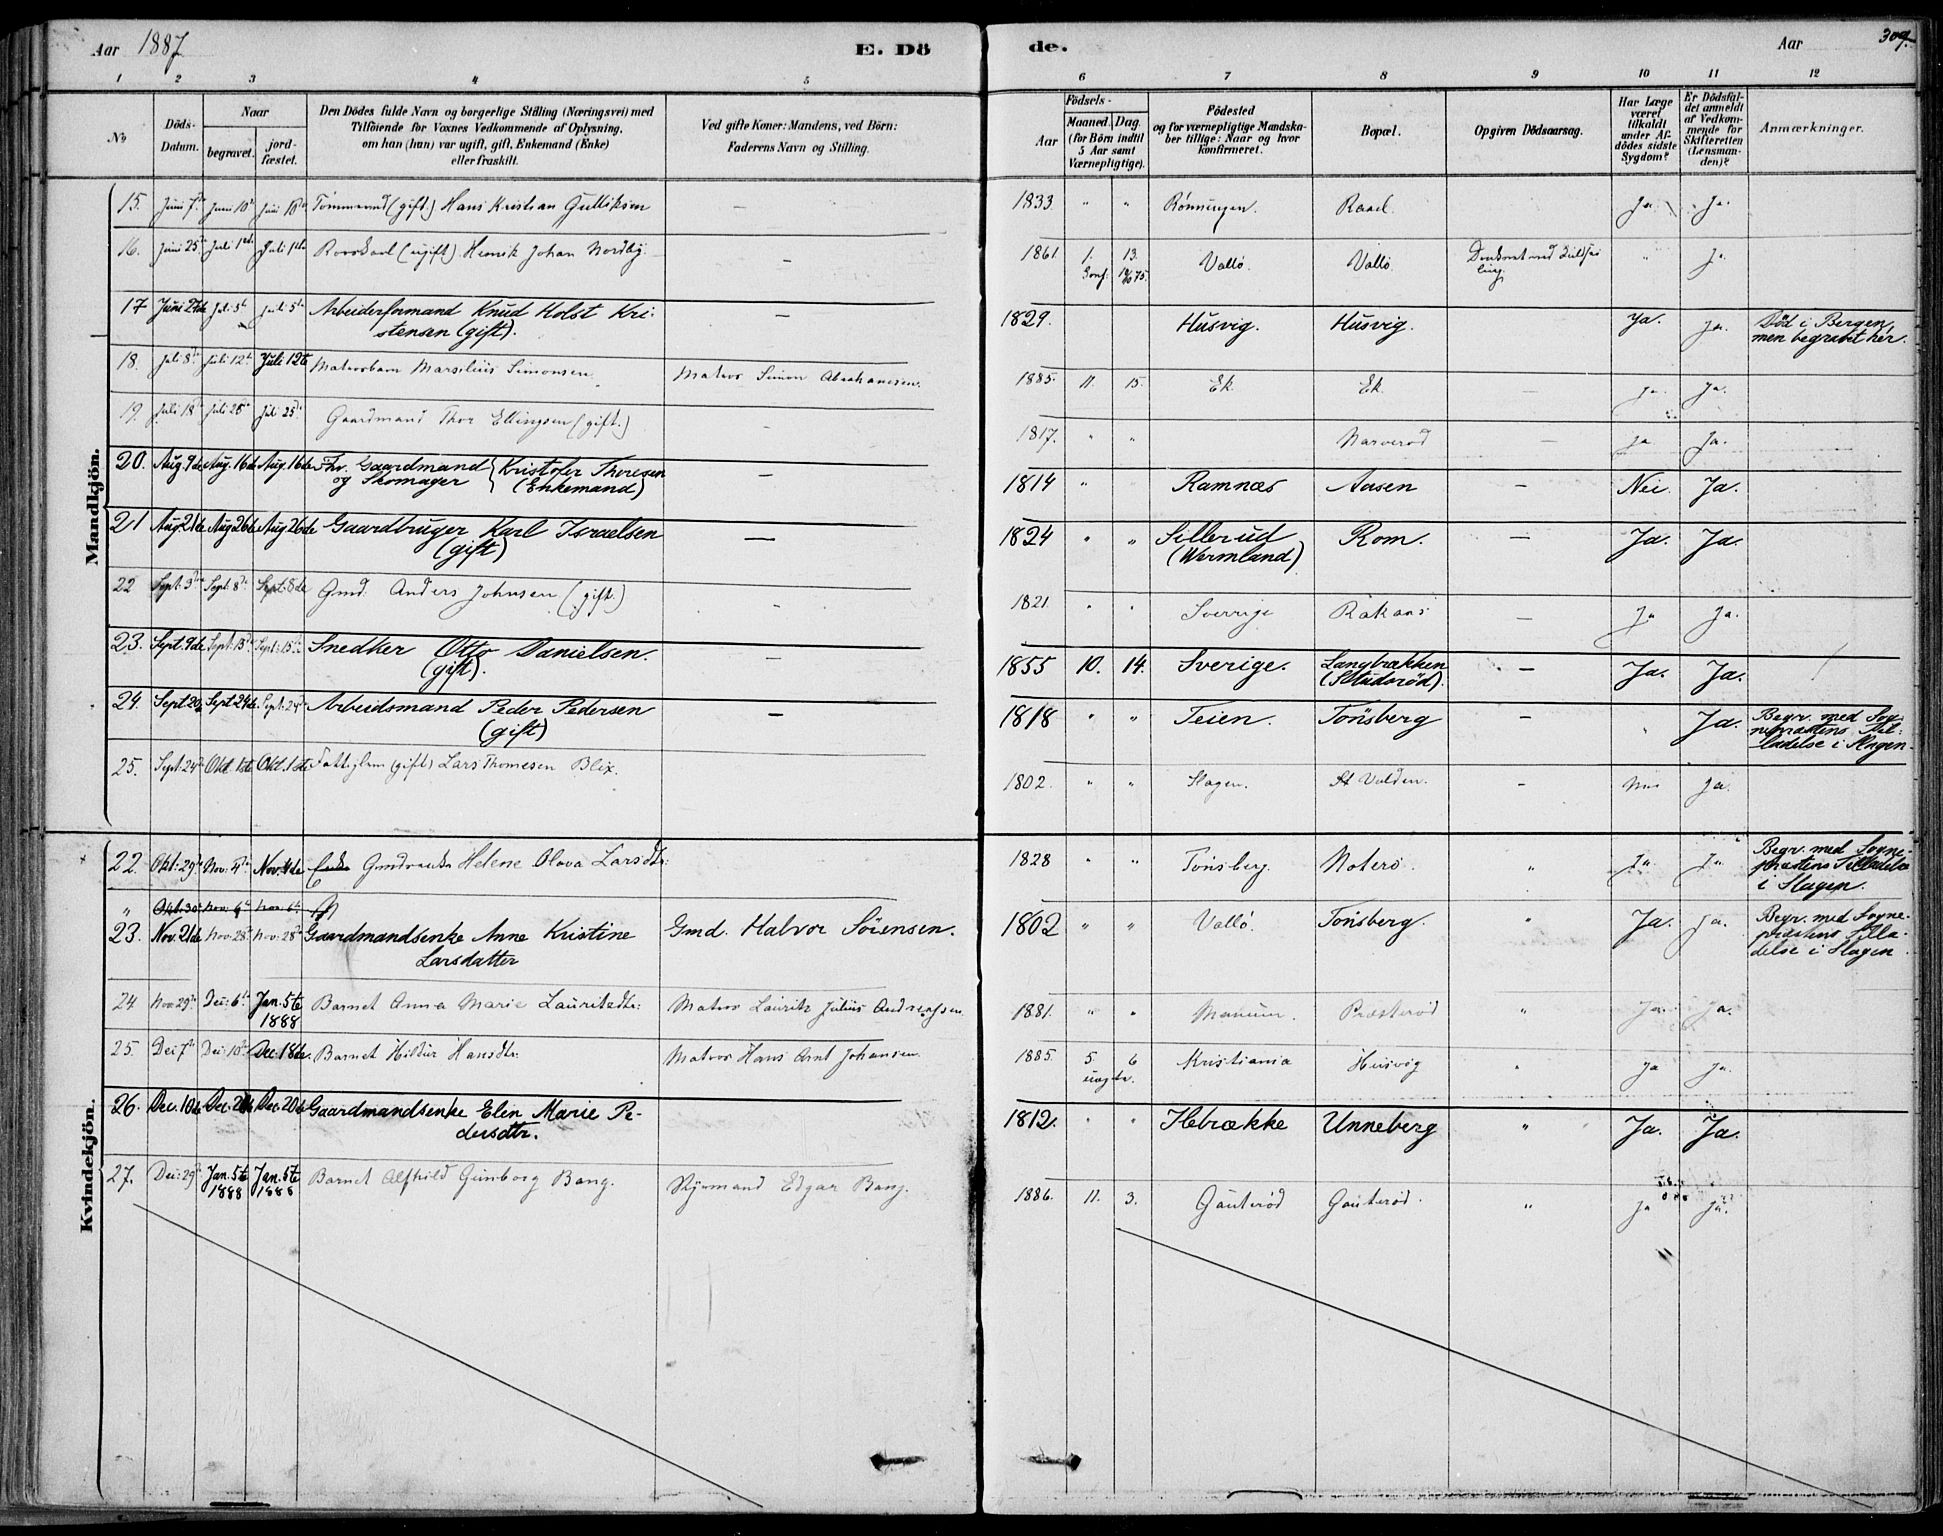 Aar 1887 E. Dö de. Aar 309.
1 2 3 4 5 6 7 8 9 10 11 12
No
Döds-Datum.
Naar
begravet.
jord-fæstet.
Den Dödes fulde Navn og borgerlige Stilling (Næringsvei) med
Tilföiende for Voxnes Vedkommende af Oplysning,
om han (hun) var ugift, gift, Enkemand (Enke)
eller fraskilt.
Ved gifte Koner: Mandens, ved Börn:
Faderens Navn og Stilling.
Födsels-
Aar
Maaned. Dag.
(for Börn indtil
5 Aar samt
Værnepligtige).
Födested
og for værnepligtige Mandska-
ber tillige: Naar og hvor
konfirmeret.
Bopæl.
Opgiven Dödsaarsag.
Har Læge
været
tilkaldt
under Af-
dödes sidste
Sygdom?
Er Dödsfal-
det anmeldt
af Vedkom-
mende for
Skifteretten
(Lensman-
den)?
Anmærkninger.
Mandkjön.
15. Juni 7de Juni 10de Juni 10de (gift) Hans Kristian Gulliksen — 1833 " " Rönningen. Raael. Ja Ja.
16. Juni 25de Juli 1ste Juli 1ste (ugift) Henrik Johan Nordby. — 1861 1. 13. Vallö. Vallö " Ja.
Conf. 75.
17 Juni 27de Juli 5te Juli 5te Arbeiderformand Knud Holst Kri-
stensen (gift). — 1829. Husvig. Husvig. Ja. Ja. Död i Bergen,
men begravet her.
18. Juli 8de Juli 12te Juli 12te Matrosbarn Marselius Simonsen. Matros Simon Abrahamsen. 1885. 11. 15. Ek. Ek. — Ja. Ja.
19. Juli 18de Juli 25de Juli 25de Gaardmand Thor Ellingsen (gift.) — 1817. " " Narveröd — Ja Ja.
20. Aug. 9de Aug. 16de Aug. 16de Fhv. Gaardmand og Skomager } Kristofer Thoresen
(Enkemand) — 1814 " " Ramnæs Aasen — Nei. Ja.
21 Aug. 21de Aug. 26de Aug. 26de Gaardbruger Karl Israelsen
(gift) — 1824 " " Sillerud
(Wermland) Rom. — Ja. Ja.
22 Sept. 3die Sept. 8de Sept. 8de Gmd. Anders Johnsen (gift.) 1821. " " Sverrige Råkaas — Ja Ja.
23. Sept. 9de Sept. 15de Sept. 15de Snedker Otto Danielsen.
(gift). — 1855 10. 14. Sverige. Langbrækken
— Ja. Ja.
24. Sept. 20de Sept. 24de Sept. 24de Arbeidsmand Peder Pedersen
(gift) — 1818 " " Teien. Tönsberg — " Ja. Begr. med Sog-
nepræstens Til-
ladelse i Slagen.
25. Sept. 24de Okt. 1ste Okt. 1ste Fattiglem (gift) Lars Thomesen Blix. 1802. " " Slagen. Volden. — Nei Ja.
Kvindekjön.
22. Okt. 29de Nov. 4de Nov. 4de Helene Olava Larsdtr: 1828 " " Tönsberg. Noterö " Ja Ja Begr. med Sogne-
præstens Tilladelse
i Slagen.
" Okt. 30te Nov. 6te Nov. 6te
23. Nov. 21de Nov. 28de Nov. 28de Gaardmandsenke Anne Kristine
Larsdatter Gmd. Halvor Sörensen. 1802 " " Vallö. Tönsberg. " Ja. Ja. Begr. med Sogne-
præstens Tilla-
delse i Slagen
24 Nov. 29de Dec. 6te Jan. 5te
1888 Barnet Anna Marie Lauritsdtr: Matros Lauritz Julius Andreassen. 1881. " " Manum. Præsteröd " Ja. Ja.
25. Dec. 7de Dec. 10de Dec. 18de Barnet Hildur Hansdtr: Matros Hans Arnt Johansen. 1885. 5. 6 Kristiania Husvig " Ja Ja.
uægte.
26. Dec. 10de Dec. 20de Dec. 20de Gaardmandsenke Elen Marie Pe-
dersdtr. 1812. " " Ilebrække Unneberg " Ja. Ja.
27. Dec. 29de Jan. 5te
1888 Jan. 5te
1888 Barnet Alfhild Gunborg Bang. Styrmand Edgar Bang. 1886. 11. 3. Gauteröd Gauteröd. " Ja Ja.